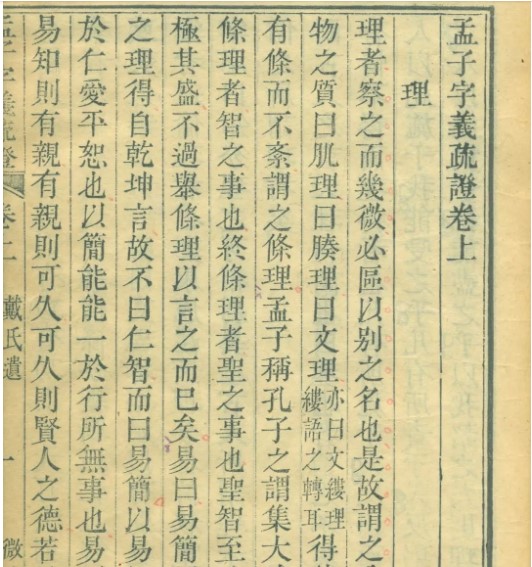 孟子字義疏證卷上
理
理者察之而幾微必區以别之名也是故謂之
物之質曰肌理曰腠理曰文理亦曰文縷理縷語之轉耳得
有條而不紊謂之條理孟子稱孔子之謂集大
條理者智之事也終條理者聖之事也聖智至
極其盛不過舉條理以言之而已矣易曰易簡
之理得自乾坤言故不曰仁智而曰易簡以易
於仁愛平恕也以簡能能一於行所無事也易
易知則有親有親則可久可久則賢人之德若
孟子字義疏證 卷二 戴氏遺 一 微